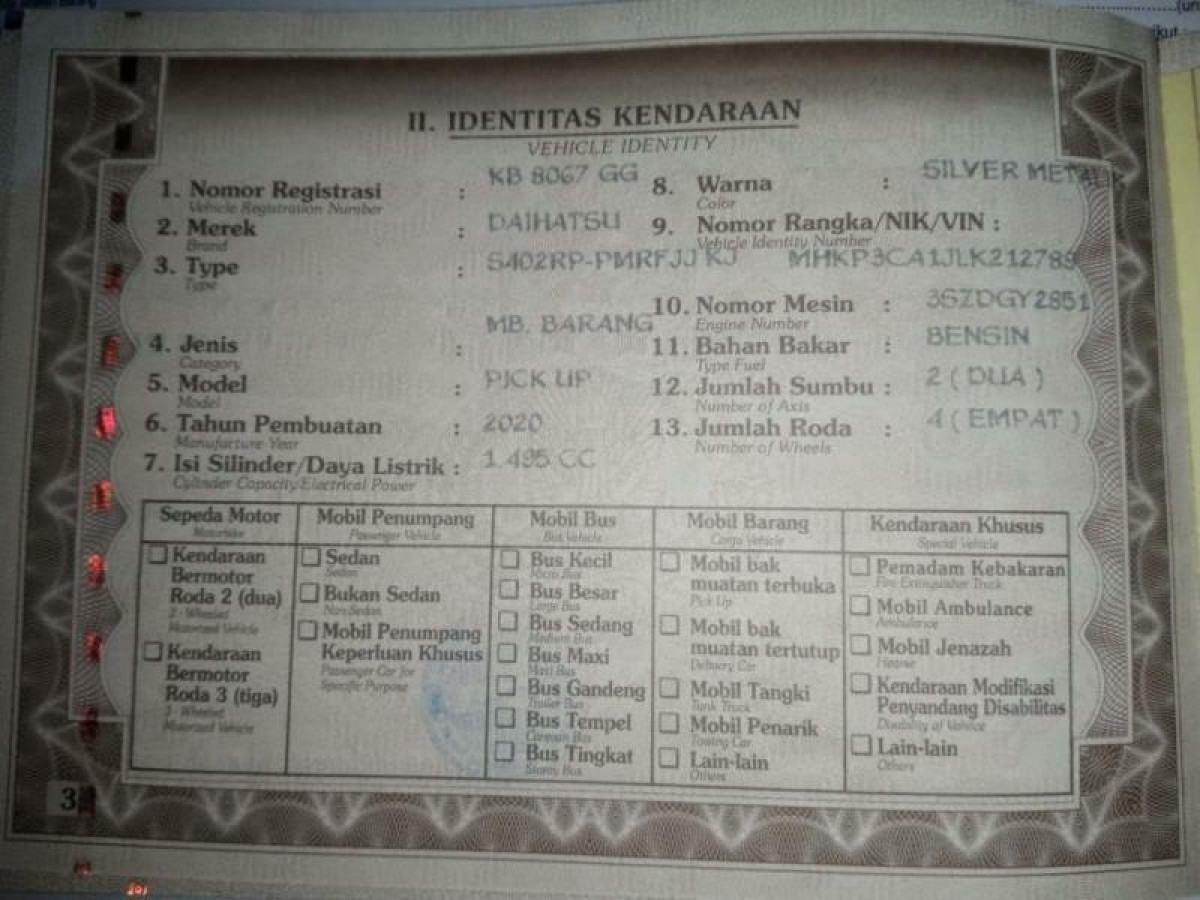 II. IDENTITAS KENDARAAN
VEHICLE IDENTITY
1. Nomor Registrasi : KB 8067 GG
Vehicle Registration Number
2. Merek : DAIHATSU
Brand
3. Type : S402RP-PMRFJJ KJ
Type
4. Jenis : MB. BARANG
Category
5. Model : PICK UP
Model
6. Tahun Pembuatan : 2020
Manufacture Year
7. Isi Silinder/Daya Listrik : 1.495 CC
Cylinder Capacity/Electrical Power
8. Warna : SILVER METALIK
Color
9. Nomor Rangka/NIK/VIN :
Vehicle Identity Number
MHKP3CA1JLK212789
10. Nomor Mesin : 3SZDGY2851
Engine Number
11. Bahan Bakar : BENSIN
Type Fuel
12. Jumlah Sumbu : 2 ( DUA )
Number of Axis
13. Jumlah Roda : 4 ( EMPAT )
Number of Wheels
Sepeda Motor
Motorbike
Kendaraan
Bermotor
Roda 2 (dua)
2 - Wheeled
Motorized Vehicle
Kendaraan
Bermotor
Roda 3 (tiga)
3 - Wheeled
Motorized Vehicle
Mobil Penumpang
Passenger Vehicle
Sedan
Sedan
Bukan Sedan
Non Sedan
Mobil Penumpang
Keperluan Khusus
Passenger Car for
Specific Purpose
Mobil Bus
Bus Vehicle
Bus Kecil
Micro Bus
Bus Besar
Large Bus
Bus Sedang
Medium Bus
Bus Maxi
Maxi Bus
Bus Gandeng
Trailer Bus
Bus Tempel
Caravan Bus
Bus Tingkat
Storey Bus
Mobil Barang
Cargo Vehicle
Mobil bak
muatan terbuka
Pick Up
Mobil bak
muatan tertutup
Delivery Car
Mobil Tangki
Tank Truck
Mobil Penarik
Towing Car
Lain-lain
Others
Kendaraan Khusus
Special Vehicle
Pemadam Kebakaran
Fire Extinguisher Truck
Mobil Ambulance
Ambulance
Mobil Jenazah
Hearse
Kendaraan Modifikasi
Penyandang Disabilitas
Lain-lain
Others
3